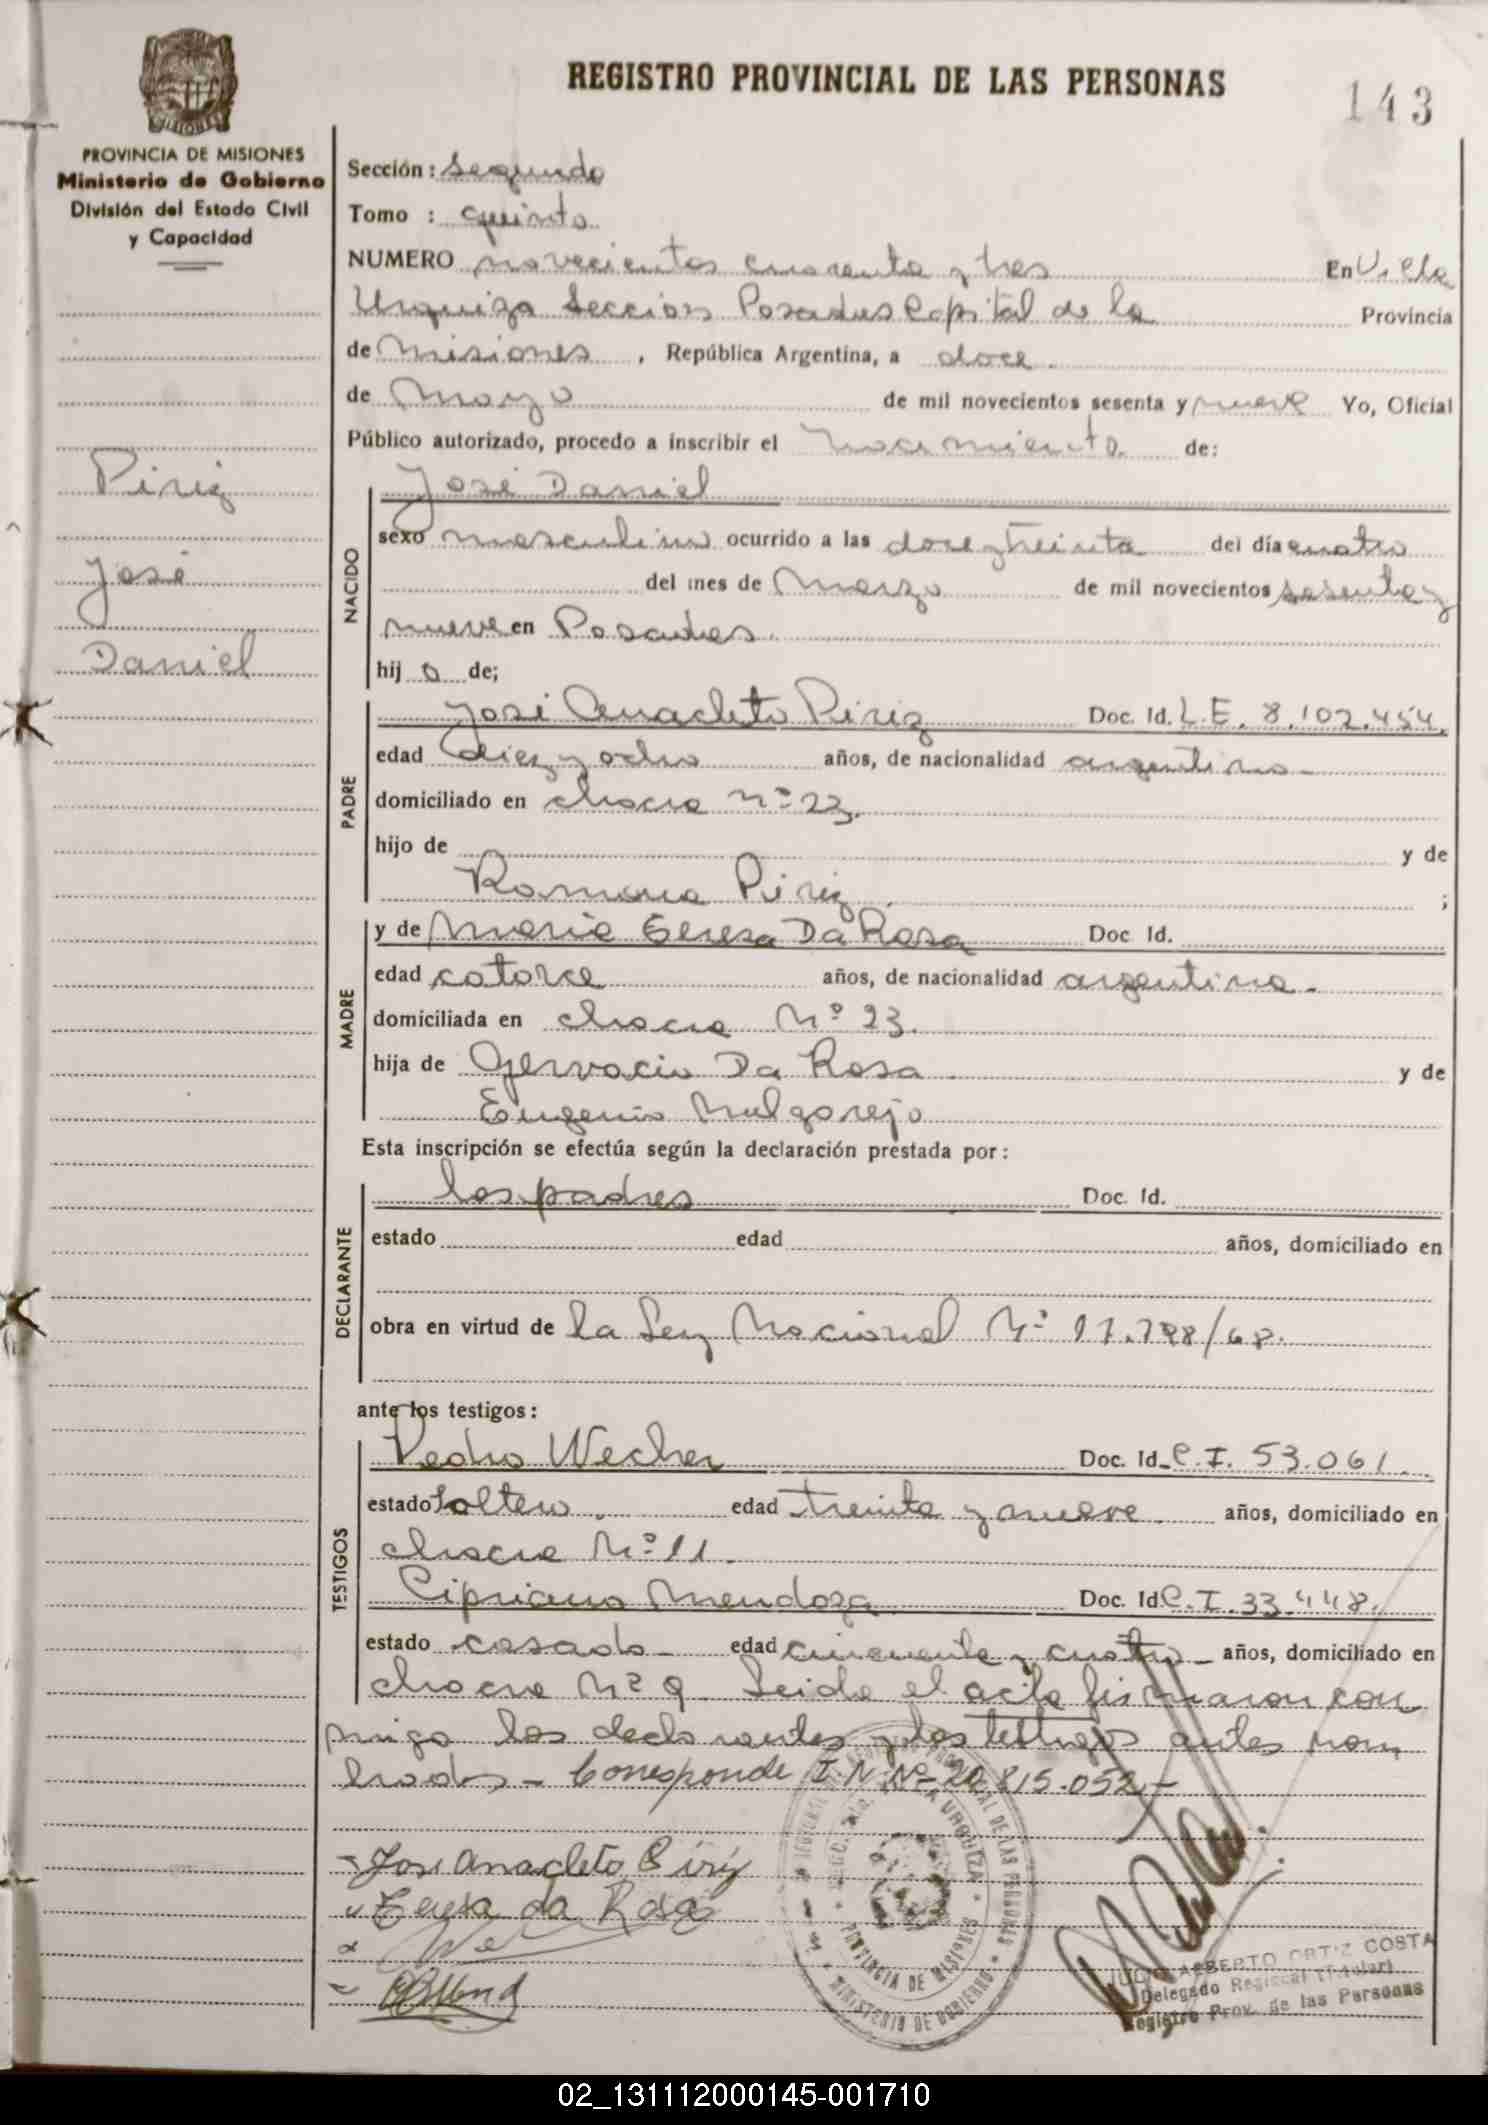 REGISTRO PROVINCIAL DE LAS PERSONAS
143
MISIONES
PROVINCIA DE MISIONES
Ministerio de Gobierno
División del Estado Civil
y Capacidad
Piriz
José
Daniel
Sección: Segunda
Tomo : quinto
NUMERO novecientos cuarenta y tres En Villa
Urquiza Sección Posadas Capital de la Provincia
de Misiones, República Argentina, a doce
de Mayo de mil novecientos sesenta y nueve Yo, Oficial
Público autorizado, procedo a inscribir el nacimiento de:
NACIDO
José Daniel
sexo masculino ocurrido a las doce y treinta del día cuatro
del mes de Marzo de mil novecientos sesenta y
nueve en Posadas.
hij o de;
PADRE
José Anacleto Piriz Doc. Id. L.E. 8.102.454.
edad diez y ocho años, de nacionalidad argentino
domiciliado en chacra Nº 23.
hijo de y de
Ramona Piriz. ;
MADRE
y de Maria Teresa Da Rosa Doc. Id.
edad catorce años, de nacionalidad argentina.
domiciliada en chacra Nº 23.
hija de Gervacio Da Rosa y de
Eugenia Malgarejo
Esta inscripción se efectúa según la declaración prestada por:
DECLARANTE
los padres Doc. Id.
estado edad años, domiciliado en
obra en virtud de la Ley Nacional Nº /68.
ante los testigos:
TESTIGOS
Pedro Doc. Id. C.I. 53.061.
estado soltero edad treinta y nueve años, domiciliado en
chacra Nº 11.
Cipriano Mendoza Doc. Id. C.I. 33.448.
estado casado edad cincuenta y cuatro años, domiciliado en
chacra Nº 9 Leida el acta firmaron con
migo los declarantes y los testigos antes nom
brados - Corresponde I.N. Nº 20.815.052 -
- José Anacleto Piriz
Teresa da Rosa
REGISTRO PROVINCIAL DE LAS PERSONAS
MINISTERIO DE GOBIERNO
PROVINCIA DE MISIONES
URQUIZA
JULIO ALBERTO ORTIZ COSTA
Delegado Regional (Titular)
Registro Prov. de las Personas
02_131112000145-001710